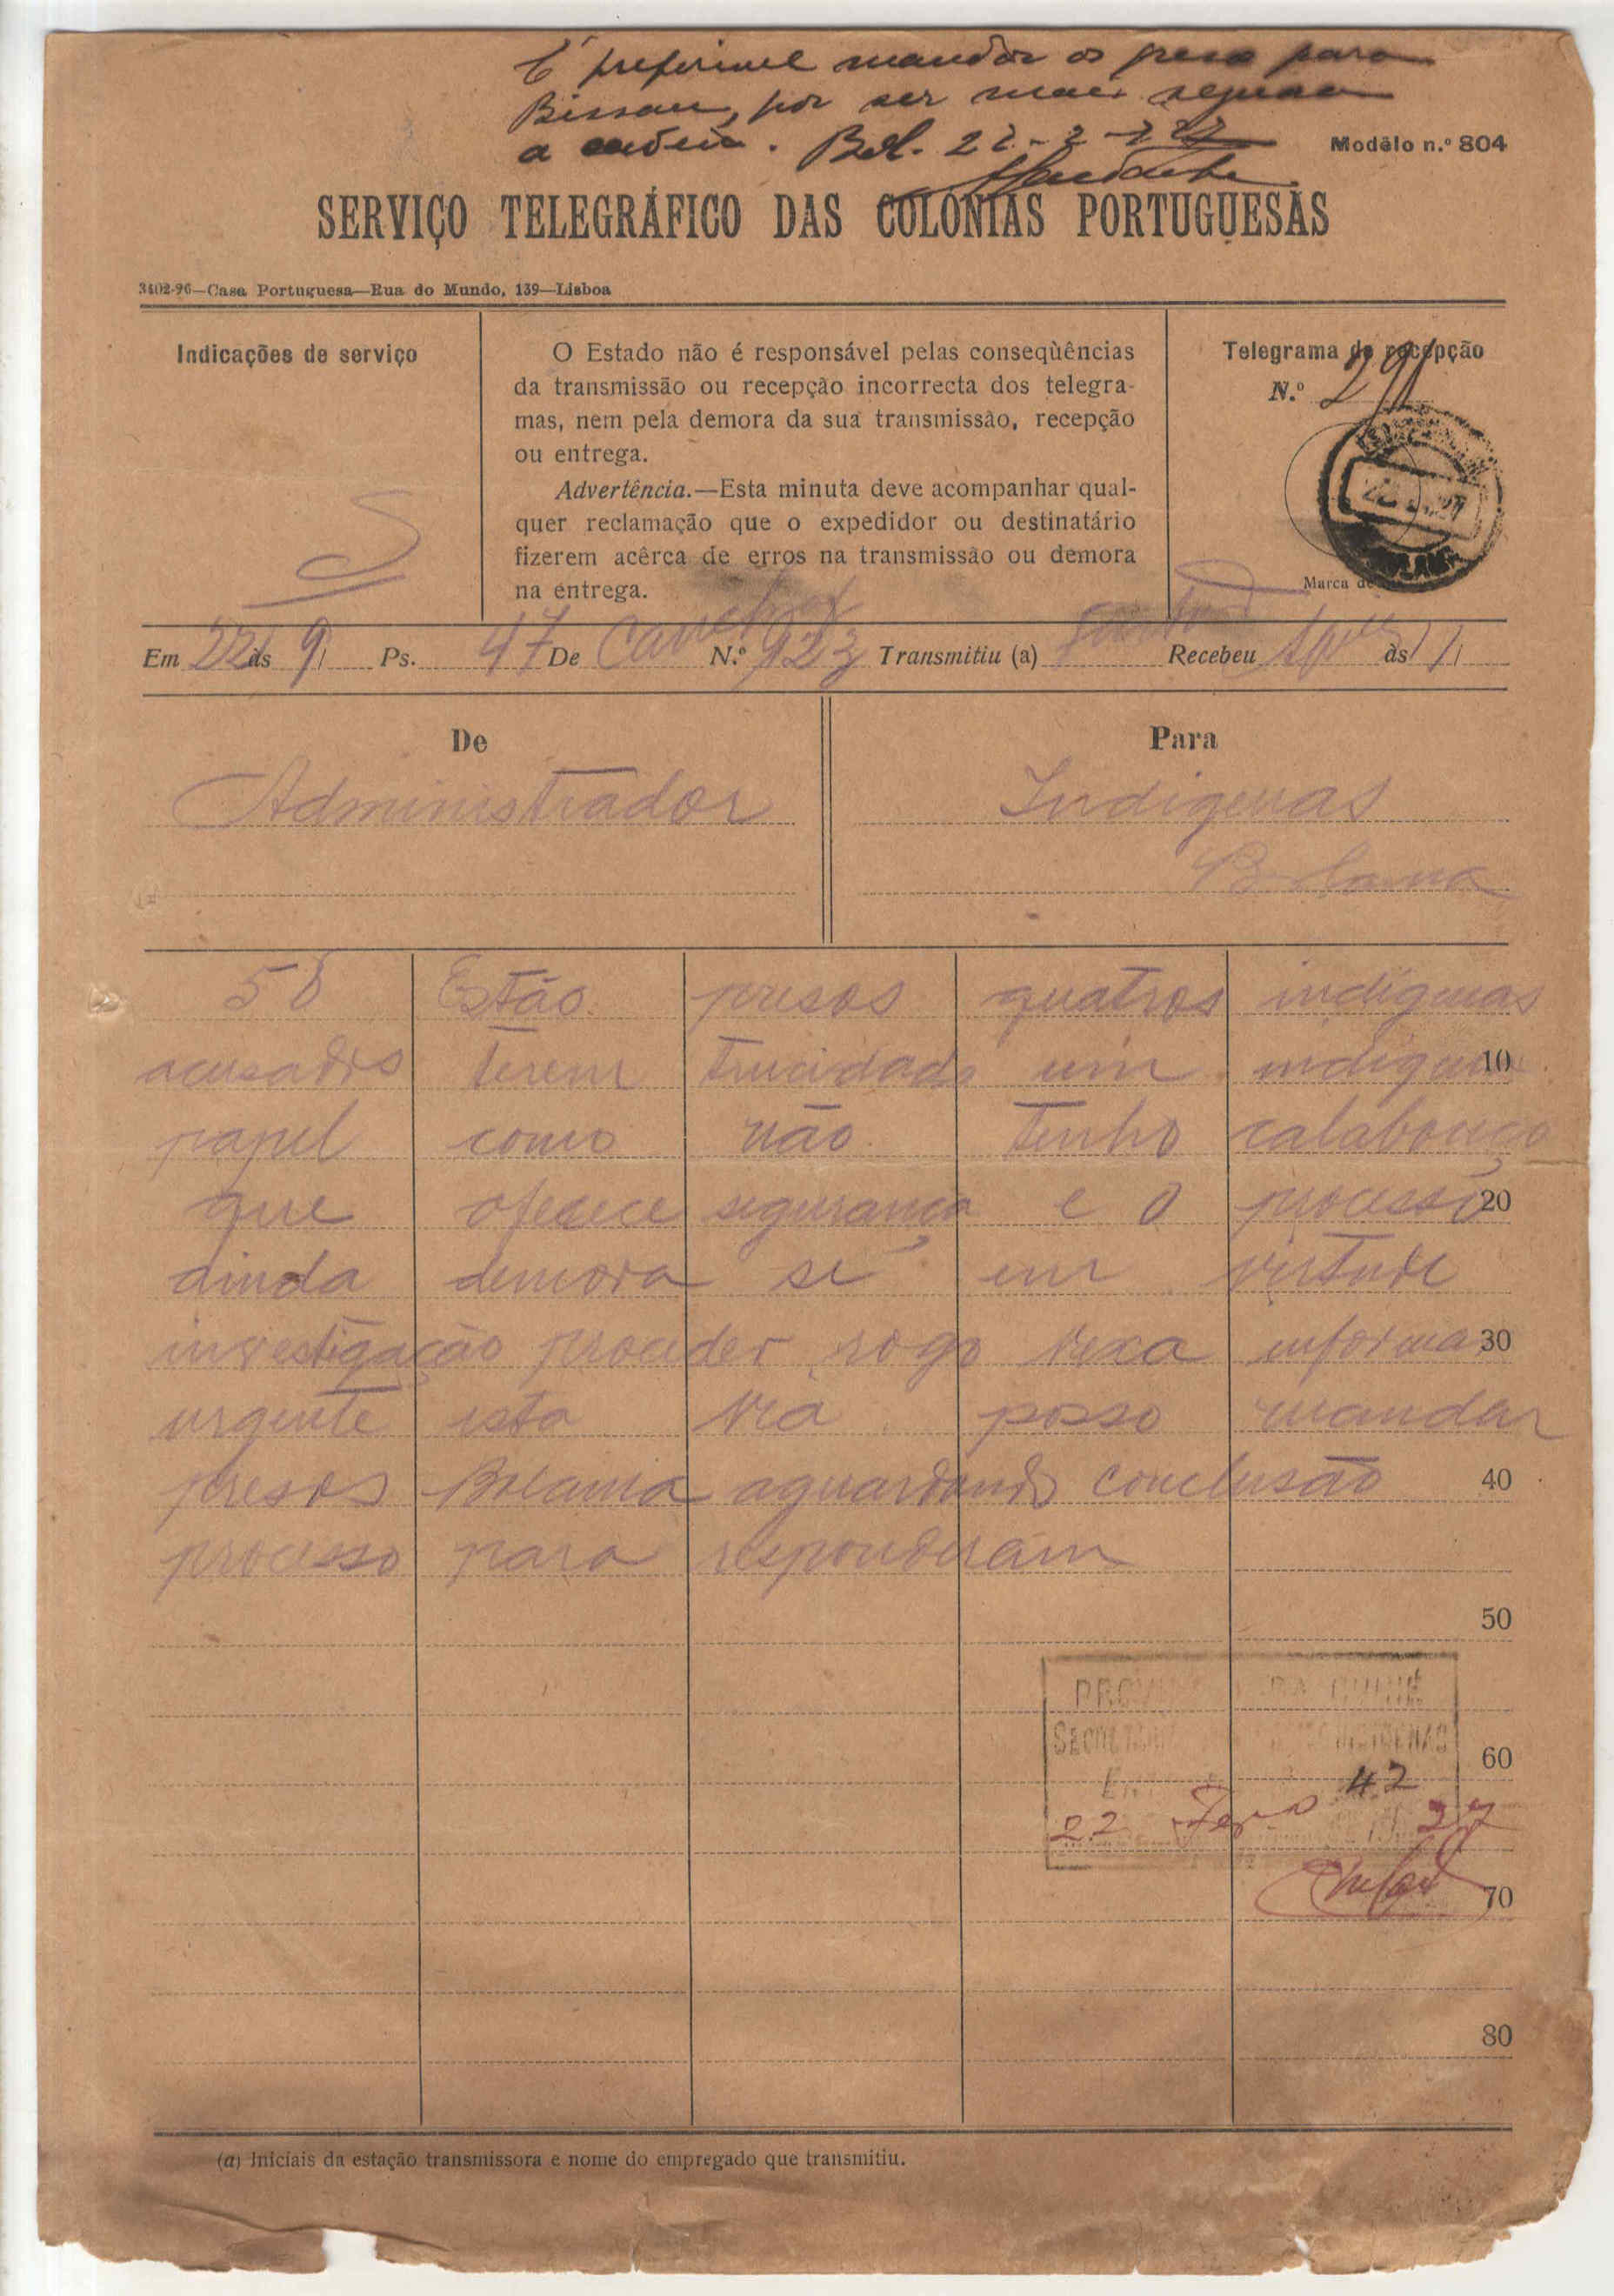 É preferivel mandar os presos para
Bissau, por ser mais segura
a cadeia. Bol. 22-2-27
Modêlo n.º 804
SERVIÇO TELEGRÁFICO DAS COLONIAS PORTUGUESAS
3402-96—Casa Portuguesa—Rua do Mundo, 139—Lisboa
Indicações de serviço
O Estado não é responsável pelas conseqùências
da transmissão ou recepção incorrecta dos telegra-
mas, nem pela demora da sua transmissão, recepção
ou entrega.
Advertência.—Esta minuta deve acompanhar qual-
quer reclamação que o expedidor ou destinatário
fizerem acêrca de erros na transmissão ou demora
na entrega.
Telegrama de recepção
N.º 291
Marca de
Em 22 às 9 Ps. 47 De N.º 923 Transmitiu (a) Recebeu às 11
De
Administrador
Para
Indigenas
Bolama
58 Estão presos quatros indigenas
acusados terem trucidado um indigena 10
papel como não tenho calabouço
que ofecece segurança e o processo 20
ainda demora se em virtude
investigação proceder rogo vexa informar 30
urgente esta via posso mandar
presos Bolama aguardando conclusão 40
processo para responderam
50
60
70
80
PROVINCIA DA GUINÉ
INDIGENAS
42
22 27
(a) Iniciais da estação transmissora e nome do empregado que transmitiu.